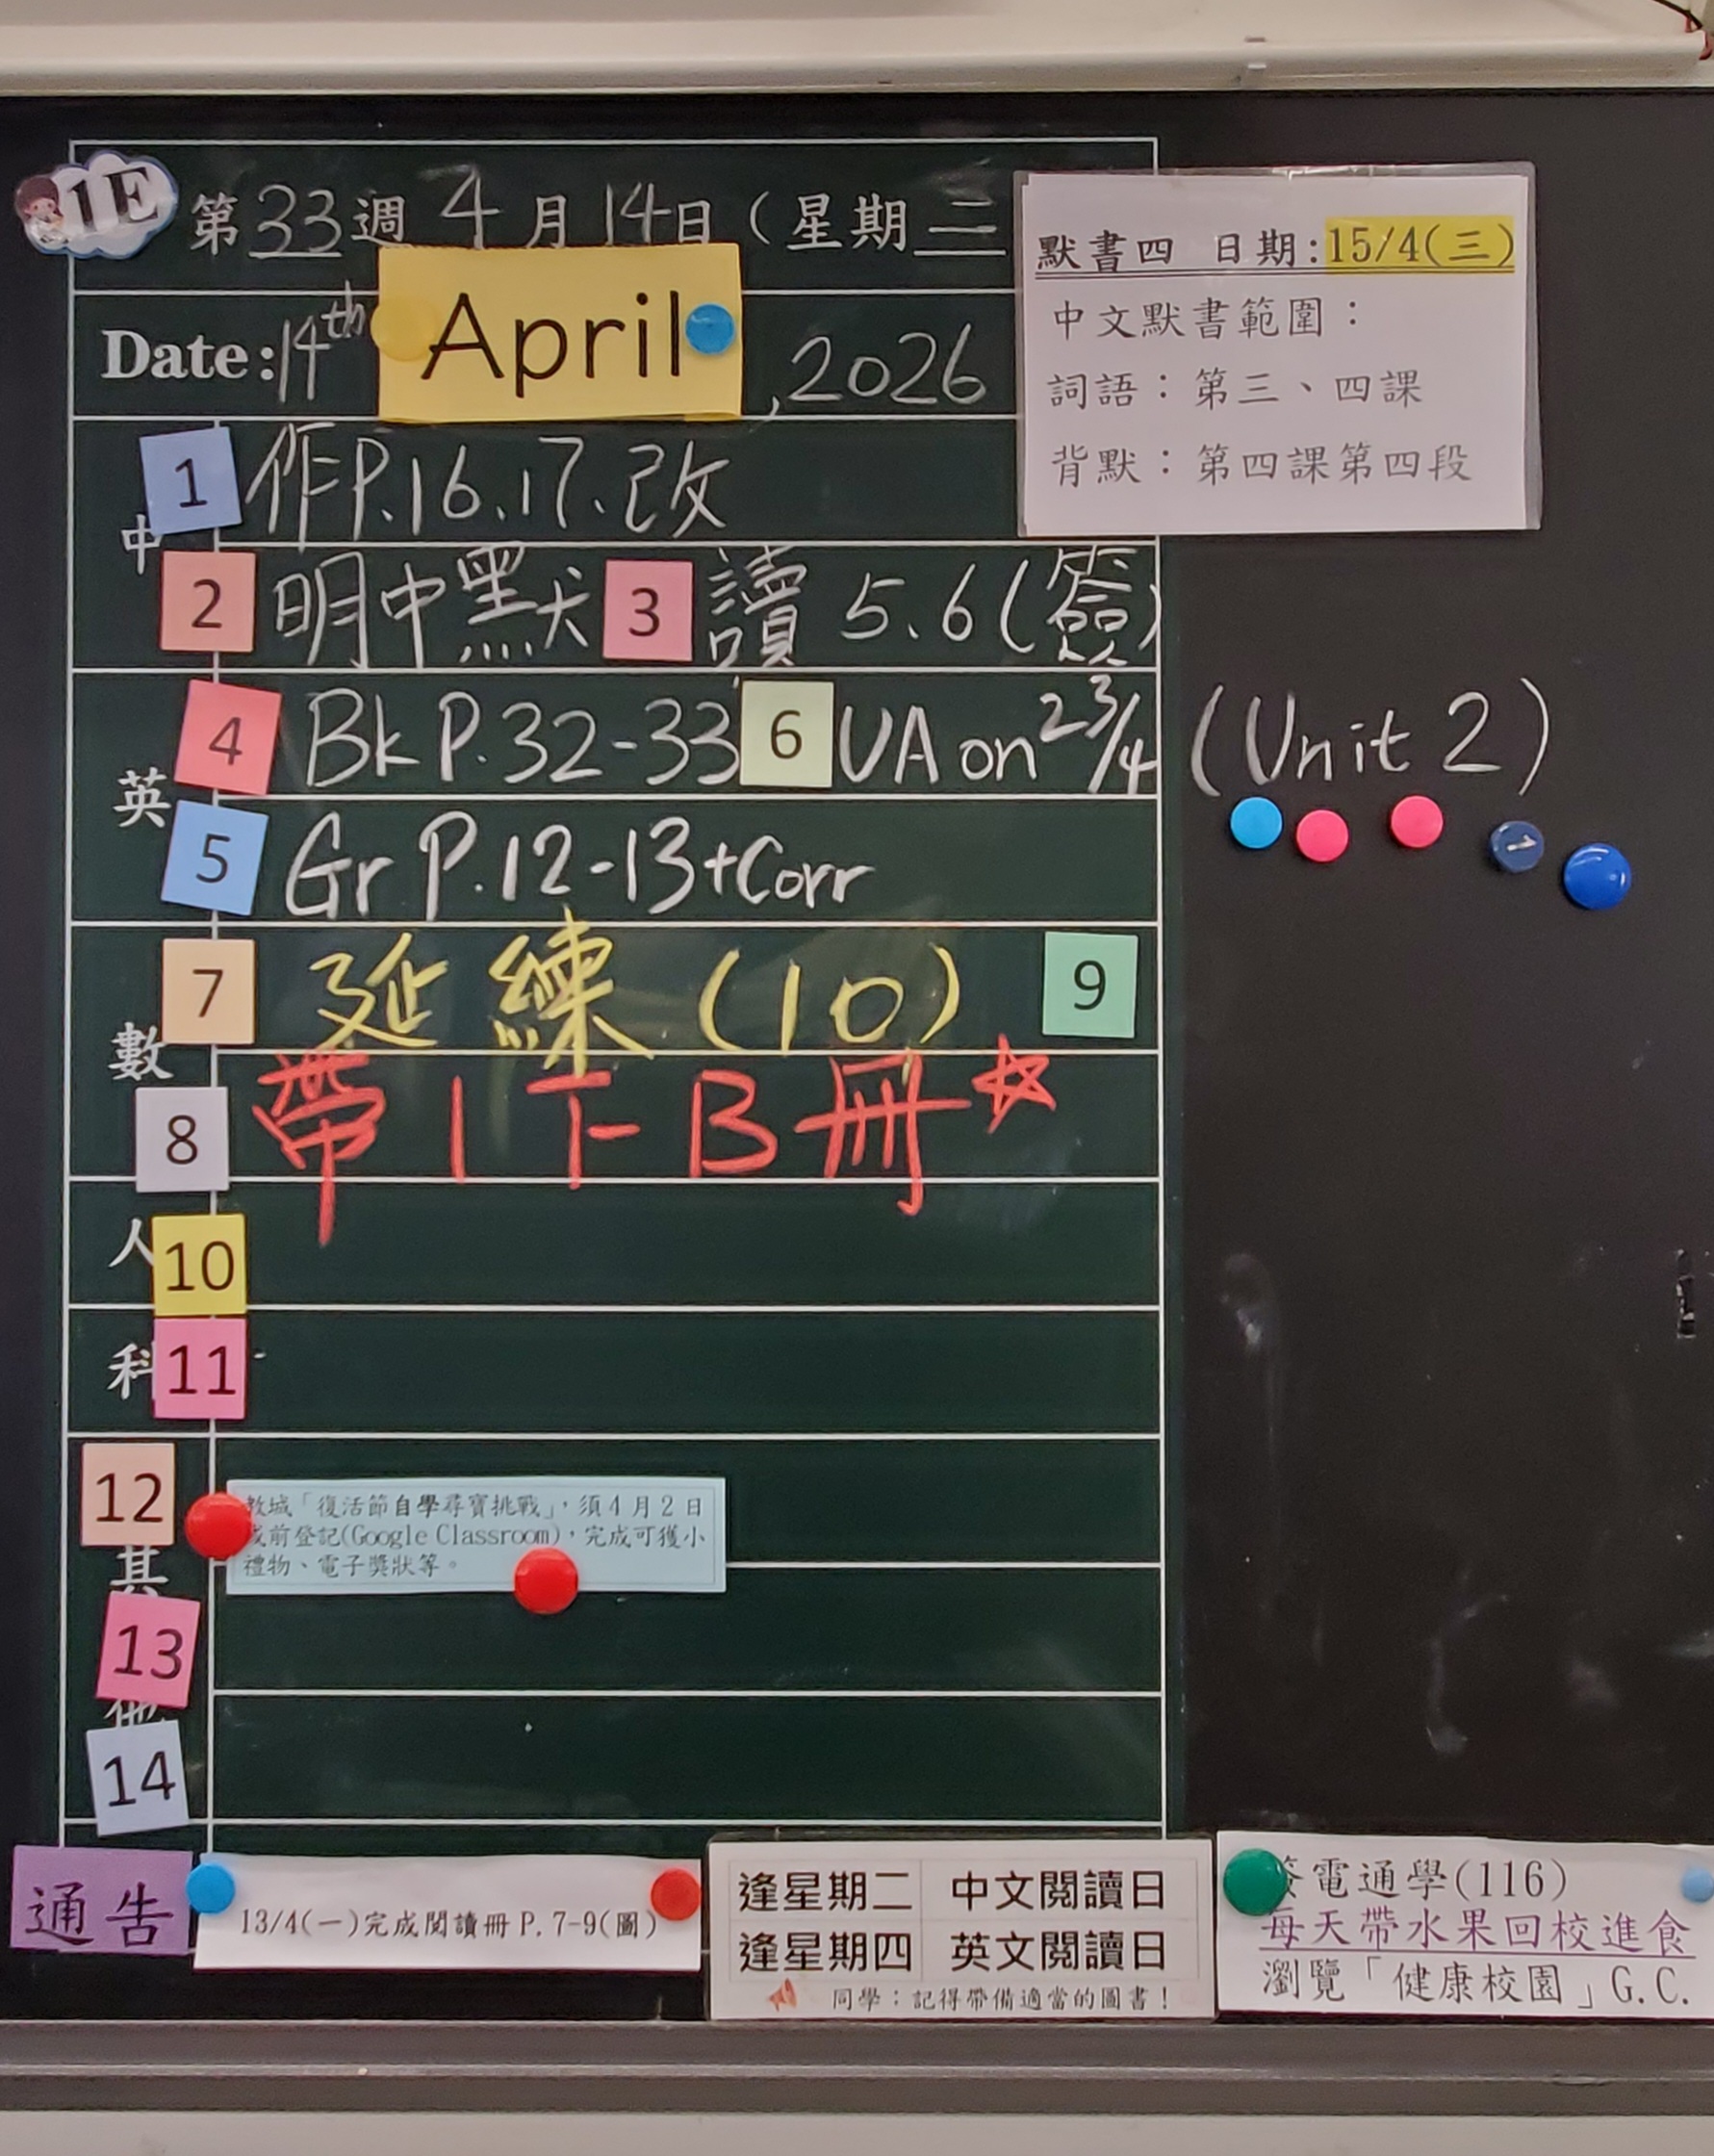 1E
第33週 4月14日(星期二
Date: 14th April, 2026
默書四 日期:15/4(三)
中文默書範圍：
詞語：第三、四課
背默：第四課第四段
中
1 作P.16.17.改
2 明中默 3 讀 5.6(簽)
英
4 Bk P.32-33 6 UA on 23/4 (Unit 2)
5 Gr P.12-13+Corr
數
7 延練(10) 9
8 帶1下B冊☆
人 10
科 11
12
教城「復活節自學尋寶挑戰」，須4月2日
或前登記(Google Classroom)，完成可獲小
禮物、電子獎狀等。
其他
13
14
通告
13/4(一)完成閱讀冊P.7-9(圖)
逢星期二 中文閱讀日
逢星期四 英文閱讀日
同學：記得帶備適當的圖書！
簽電通學(116)
每天帶水果回校進食
瀏覽「健康校園」G.C.